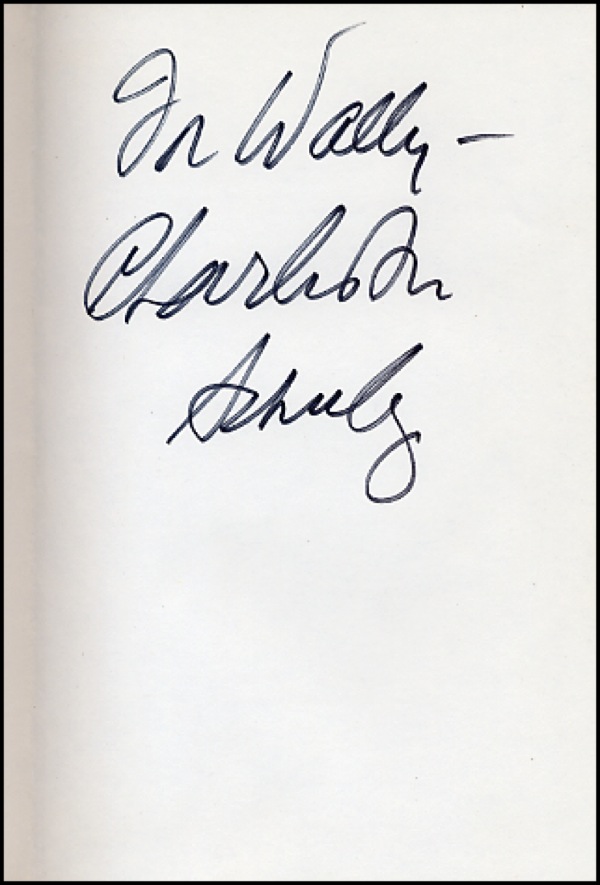 For Wally –
Charles M
Schulz